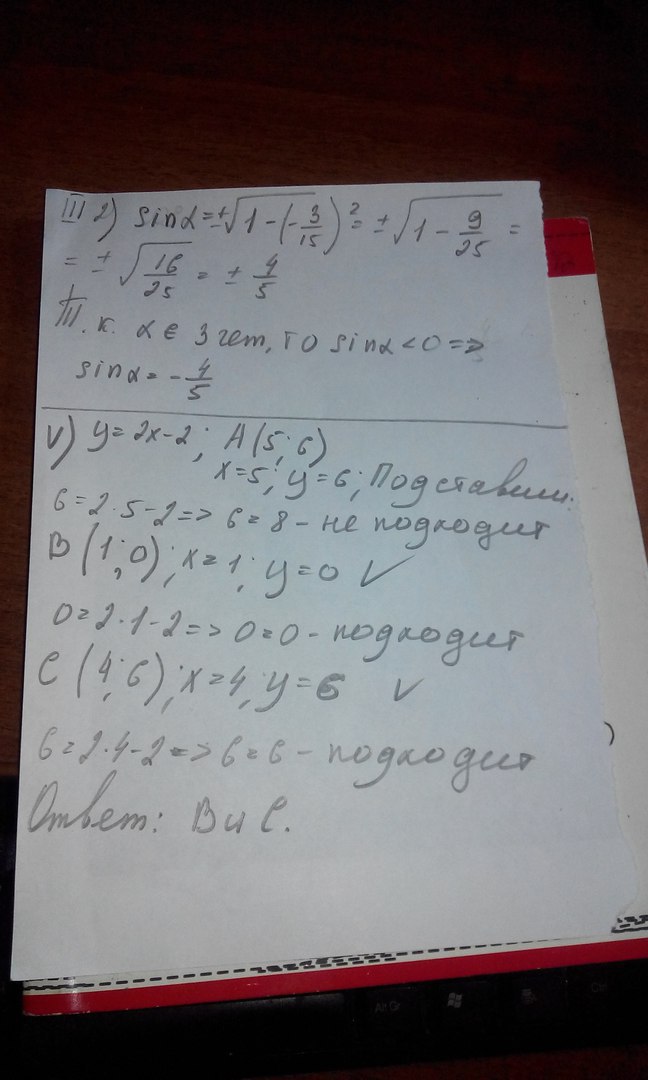 III 2) sinα = ±√1-(-3/15)² = ±√1-9/25 =
= ±√16/25 = ± 4/5
Т.к. α ∈ 3 чет, то sinα < 0 =>
sinα = - 4/5
V) y = 2x - 2; A(5; 6)
x = 5; y = 6; Подставим:
6 = 2·5-2 => 6 = 8 - не подходит
B (1; 0); x = 1; y = 0 ✓
0 = 2·1-2 => 0 = 0 - подходит
C (4; 6); x = 4; y = 6 ✓
6 = 2·4-2 => 6 = 6 - подходит
Ответ: B и C.
Alt Gr
Ctrl